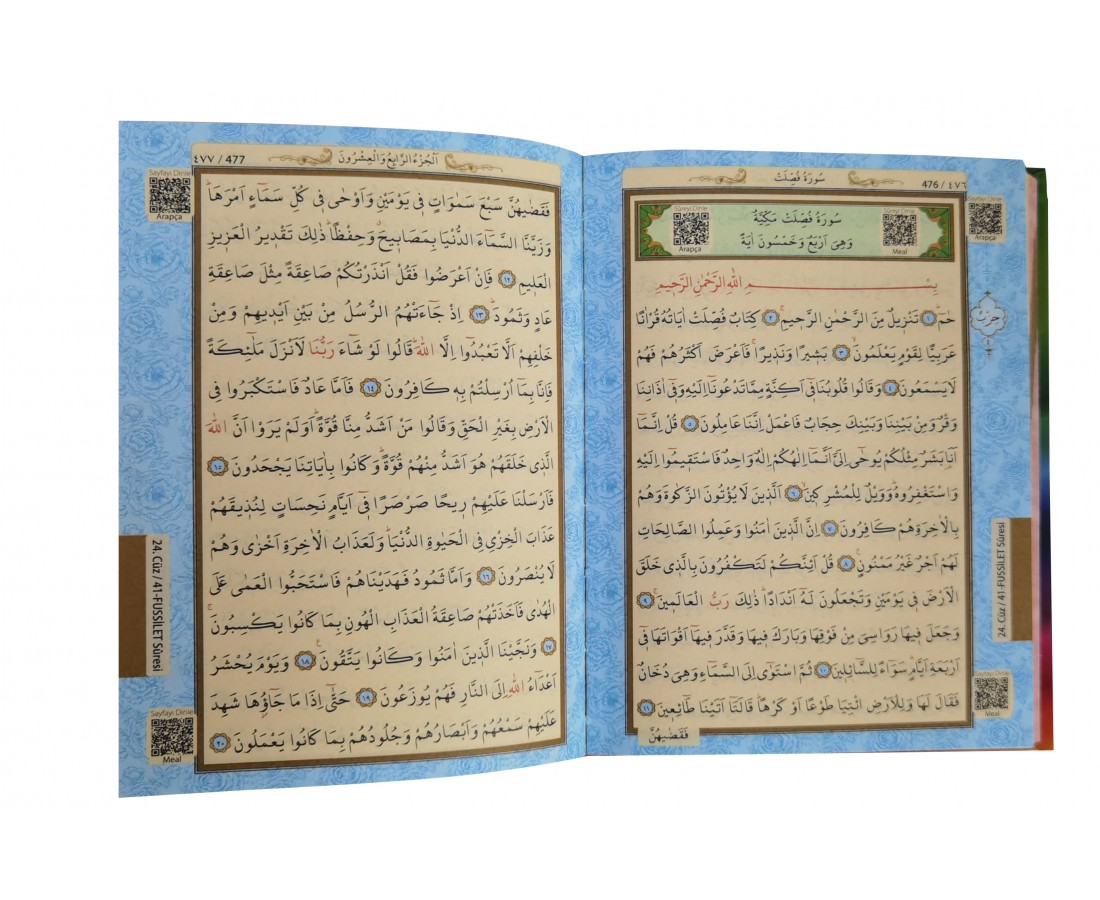 سُورَةُ فُصِّلَتْ
476 / ٤٧٦
Sûreyi Dinle
Arapça
سُورَةُ فُصِّلَتْ مَكِّيَّةٌ
وَهِىَ اَرْبَعٌ وَخَمْسُونَ اٰيَةً
Sûreyi Dinle
Meal
Sayfayı Dinle
Arapça
بِسْمِ اللّٰهِ الرَّحْمٰنِ الرَّحٖيمِ
حٰمٓ ١ تَنْزٖيلٌ مِنَ الرَّحْمٰنِ الرَّحٖيمِ ٢ كِتَابٌ فُصِّلَتْ اٰيَاتُهُ قُرْاٰنًا
عَرَبِيًّا لِقَوْمٍ يَعْلَمُونَ ٣ بَشٖيرًا وَنَذٖيرًا فَاَعْرَضَ اَكْثَرُهُمْ فَهُمْ
لَا يَسْمَعُونَ ٤ وَقَالُوا قُلُوبُنَا فٖٓى اَكِنَّةٍ مِمَّا تَدْعُونَٓا اِلَيْهِ وَفٖٓى اٰذَانِنَا
وَقْرٌ وَمِنْ بَيْنِنَا وَبَيْنِكَ حِجَابٌ فَاعْمَلْ اِنَّنَا عَامِلُونَ ٥ قُلْ اِنَّمَٓا
اَنَا بَشَرٌ مِثْلُكُمْ يُوحٰٓى اِلَىَّ اَنَّمَٓا اِلٰهُكُمْ اِلٰهٌ وَاحِدٌ فَاسْتَقٖيمُٓوا اِلَيْهِ
وَاسْتَغْفِرُوهُ وَوَيْلٌ لِلْمُشْرِكٖينَ ٦ اَلَّذٖينَ لَا يُؤْتُونَ الزَّكٰوةَ وَهُمْ
بِالْاٰخِرَةِ هُمْ كَافِرُونَ ٧ اِنَّ الَّذٖينَ اٰمَنُوا وَعَمِلُوا الصَّالِحَاتِ
لَهُمْ اَجْرٌ غَيْرُ مَمْنُونٍ ٨ قُلْ اَئِنَّكُمْ لَتَكْفُرُونَ بِالَّذٖى خَلَقَ
الْاَرْضَ فٖى يَوْمَيْنِ وَتَجْعَلُونَ لَهُٓ اَنْدَادًا ذٰلِكَ رَبُّ الْعَالَمٖينَ ٩
وَجَعَلَ فٖيهَا رَوَاسِىَ مِنْ فَوْقِهَا وَبَارَكَ فٖيهَا وَقَدَّرَ فٖيهَٓا اَقْوَاتَهَا فٖٓى
اَرْبَعَةِ اَيَّامٍ سَوَٓاءً لِلسَّٓائِلٖينَ ١٠ ثُمَّ اسْتَوٰٓى اِلَى السَّمَٓاءِ وَهِىَ دُخَانٌ
فَقَالَ لَهَا وَلِلْاَرْضِ ائْتِيَا طَوْعًا اَوْ كَرْهًا قَالَتَٓا اَتَيْنَا طَٓائِعٖينَ ١١
فَقَضٰيهُنَّ
حزب
24. Cüz / 41-FUSSİLET Sûresi
Sayfayı Dinle
Meal
اَلْجُزْءُ الرَّابِعُ وَالْعِشْرُونَ
٤٧٧ / 477
Sayfayı Dinle
Arapça
فَقَضٰيهُنَّ سَبْعَ سَمٰوَاتٍ فٖى يَوْمَيْنِ وَاَوْحٰى فٖى كُلِّ سَمَٓاءٍ اَمْرَهَا
وَزَيَّنَّا السَّمَٓاءَ الدُّنْيَا بِمَصَابٖيحَ وَحِفْظًا ذٰلِكَ تَقْدٖيرُ الْعَزٖيزِ
الْعَلٖيمِ ١٢ فَاِنْ اَعْرَضُوا فَقُلْ اَنْذَرْتُكُمْ صَاعِقَةً مِثْلَ صَاعِقَةِ
عَادٍ وَثَمُودَ ١٣ اِذْ جَٓاءَتْهُمُ الرُّسُلُ مِنْ بَيْنِ اَيْدٖيهِمْ وَمِنْ
خَلْفِهِمْ اَلَّا تَعْبُدُٓوا اِلَّا اللّٰهَ قَالُوا لَوْ شَٓاءَ رَبُّنَا لَاَنْزَلَ مَلٰٓئِكَةً
فَاِنَّا بِمَٓا اُرْسِلْتُمْ بِهٖ كَافِرُونَ ١٤ فَاَمَّا عَادٌ فَاسْتَكْبَرُوا فِى
الْاَرْضِ بِغَيْرِ الْحَقِّ وَقَالُوا مَنْ اَشَدُّ مِنَّا قُوَّةً اَوَلَمْ يَرَوْا اَنَّ اللّٰهَ
الَّذٖى خَلَقَهُمْ هُوَ اَشَدُّ مِنْهُمْ قُوَّةً وَكَانُوا بِاٰيَاتِنَا يَجْحَدُونَ ١٥
فَاَرْسَلْنَا عَلَيْهِمْ رٖيحًا صَرْصَرًا فٖٓى اَيَّامٍ نَحِسَاتٍ لِنُذٖيقَهُمْ
عَذَابَ الْخِزْىِ فِى الْحَيٰوةِ الدُّنْيَا وَلَعَذَابُ الْاٰخِرَةِ اَخْزٰى وَهُمْ
لَا يُنْصَرُونَ ١٦ وَاَمَّا ثَمُودُ فَهَدَيْنَاهُمْ فَاسْتَحَبُّوا الْعَمٰى عَلَى
الْهُدٰى فَاَخَذَتْهُمْ صَاعِقَةُ الْعَذَابِ الْهُونِ بِمَا كَانُوا يَكْسِبُونَ
١٧ وَنَجَّيْنَا الَّذٖينَ اٰمَنُوا وَكَانُوا يَتَّقُونَ ١٨ وَيَوْمَ يُحْشَرُ
اَعْدَٓاءُ اللّٰهِ اِلَى النَّارِ فَهُمْ يُوزَعُونَ ١٩ حَتّٰٓى اِذَا مَا جَٓاؤُهَا شَهِدَ
عَلَيْهِمْ سَمْعُهُمْ وَاَبْصَارُهُمْ وَجُلُودُهُمْ بِمَا كَانُوا يَعْمَلُونَ ٢٠
24. Cüz / 41-FUSSİLET Sûresi
Sayfayı Dinle
Meal